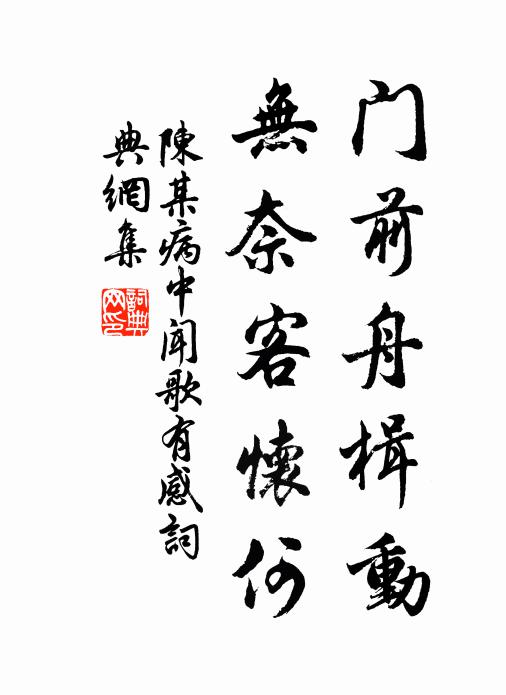 门前舟楫動
無奈客懷何
陳某病中聞歌有感詞
典網集
詞典網印